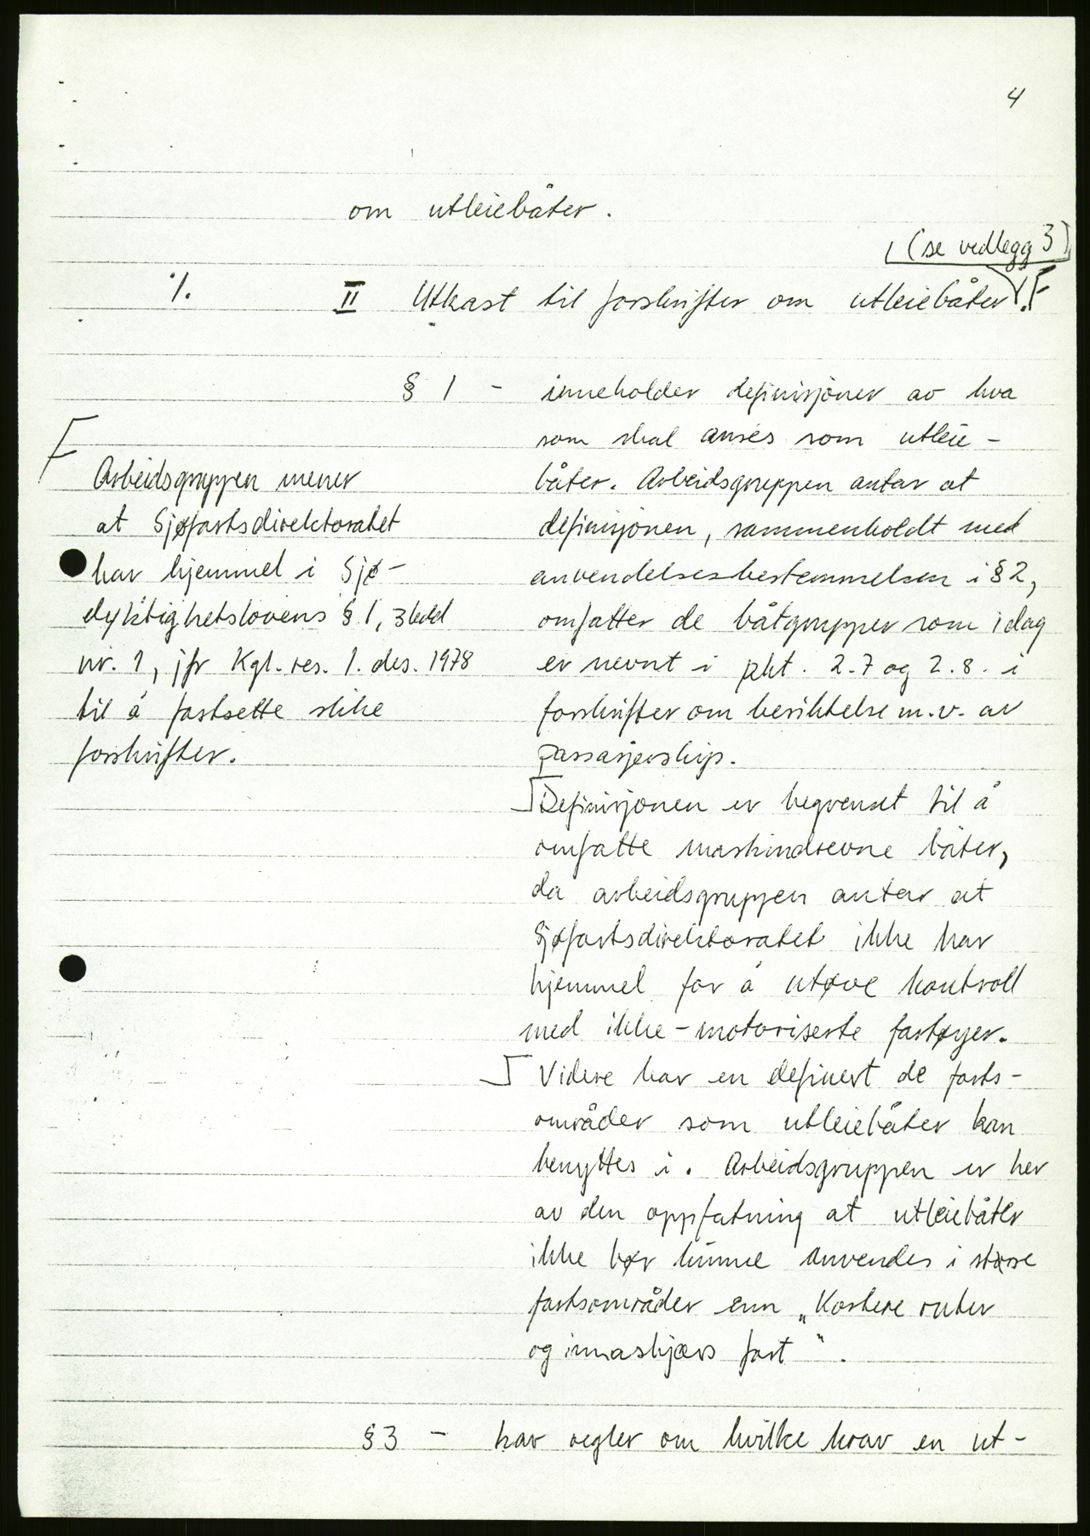 4
om utleiebåter.
(se vedlegg 3)
·/. II Utkast til forskrifter om utleiebåter.
§ 1 - inneholder definisjoner av hva
som skal anses som utleie-
båter. Arbeidsgruppen antar at
definisjonen, sammenholdt med
anvendelsesbestemmelsen i § 2,
omfatter de båtgrupper som idag
er nevnt i pkt. 2.7 og 2.8. i
forskrifter om besiktelse m.v. av
passasjerskip.
Arbeidsgruppen mener
at Sjøfartsdirektoratet
har hjemmel i Sjø-
dyktighetslovens § 1, 3 ledd
nr. 1, jfr Kgl. res. 1. des. 1978
til å fastsette slike
forskrifter.
Definisjonen er begrenset til å
omfatte maskindrevne båter,
da arbeidsgruppen antar at
Sjøfartsdirektoratet ikke har
hjemmel for å utøve kontroll
med ikke-motoriserte fartøyer.
Videre har en definert de farts-
områder som utleiebåter kan
benyttes i. Arbeidsgruppen er her
av den oppfatning at utleiebåter
ikke bør kunne anvendes i større
fartsområder enn „Kortere ruter
og innaskjærs fart".
§3 - har regler om hvilke krav en ut-